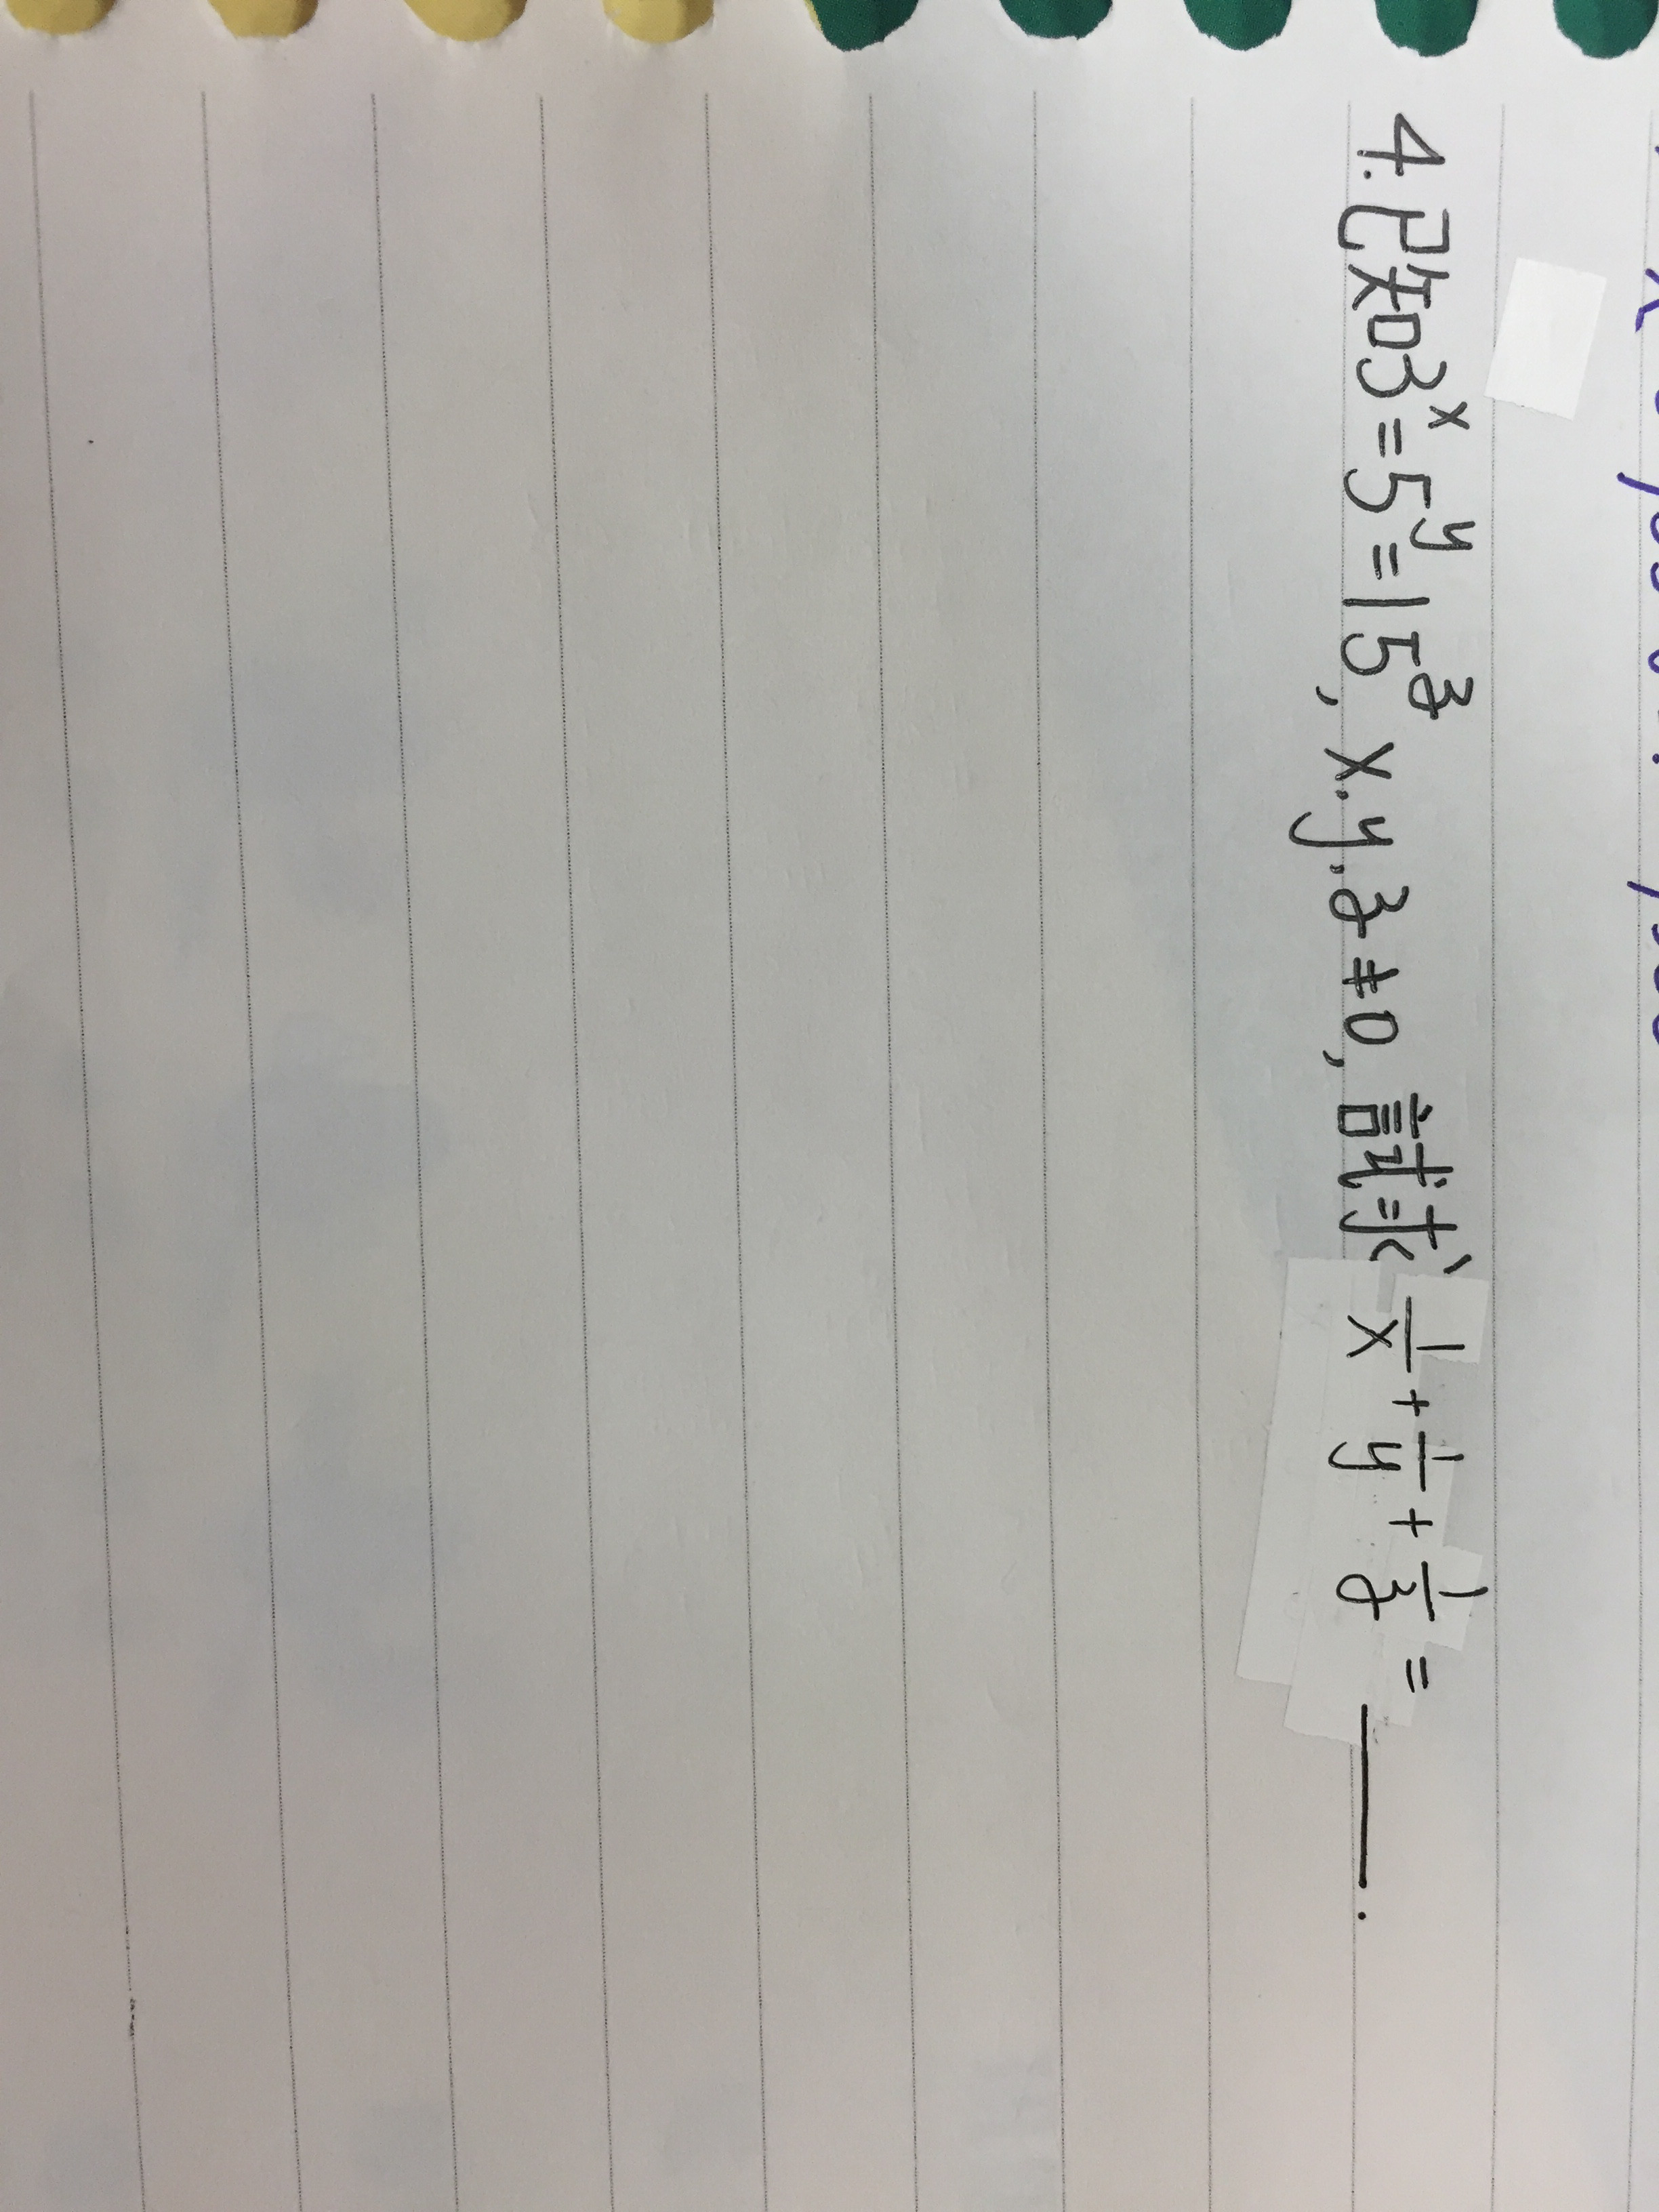 4. 已知3^x = 5^y = 15^z, x.y.z ≠ 0, 試求 1/x + 1/y + 1/z = ______.